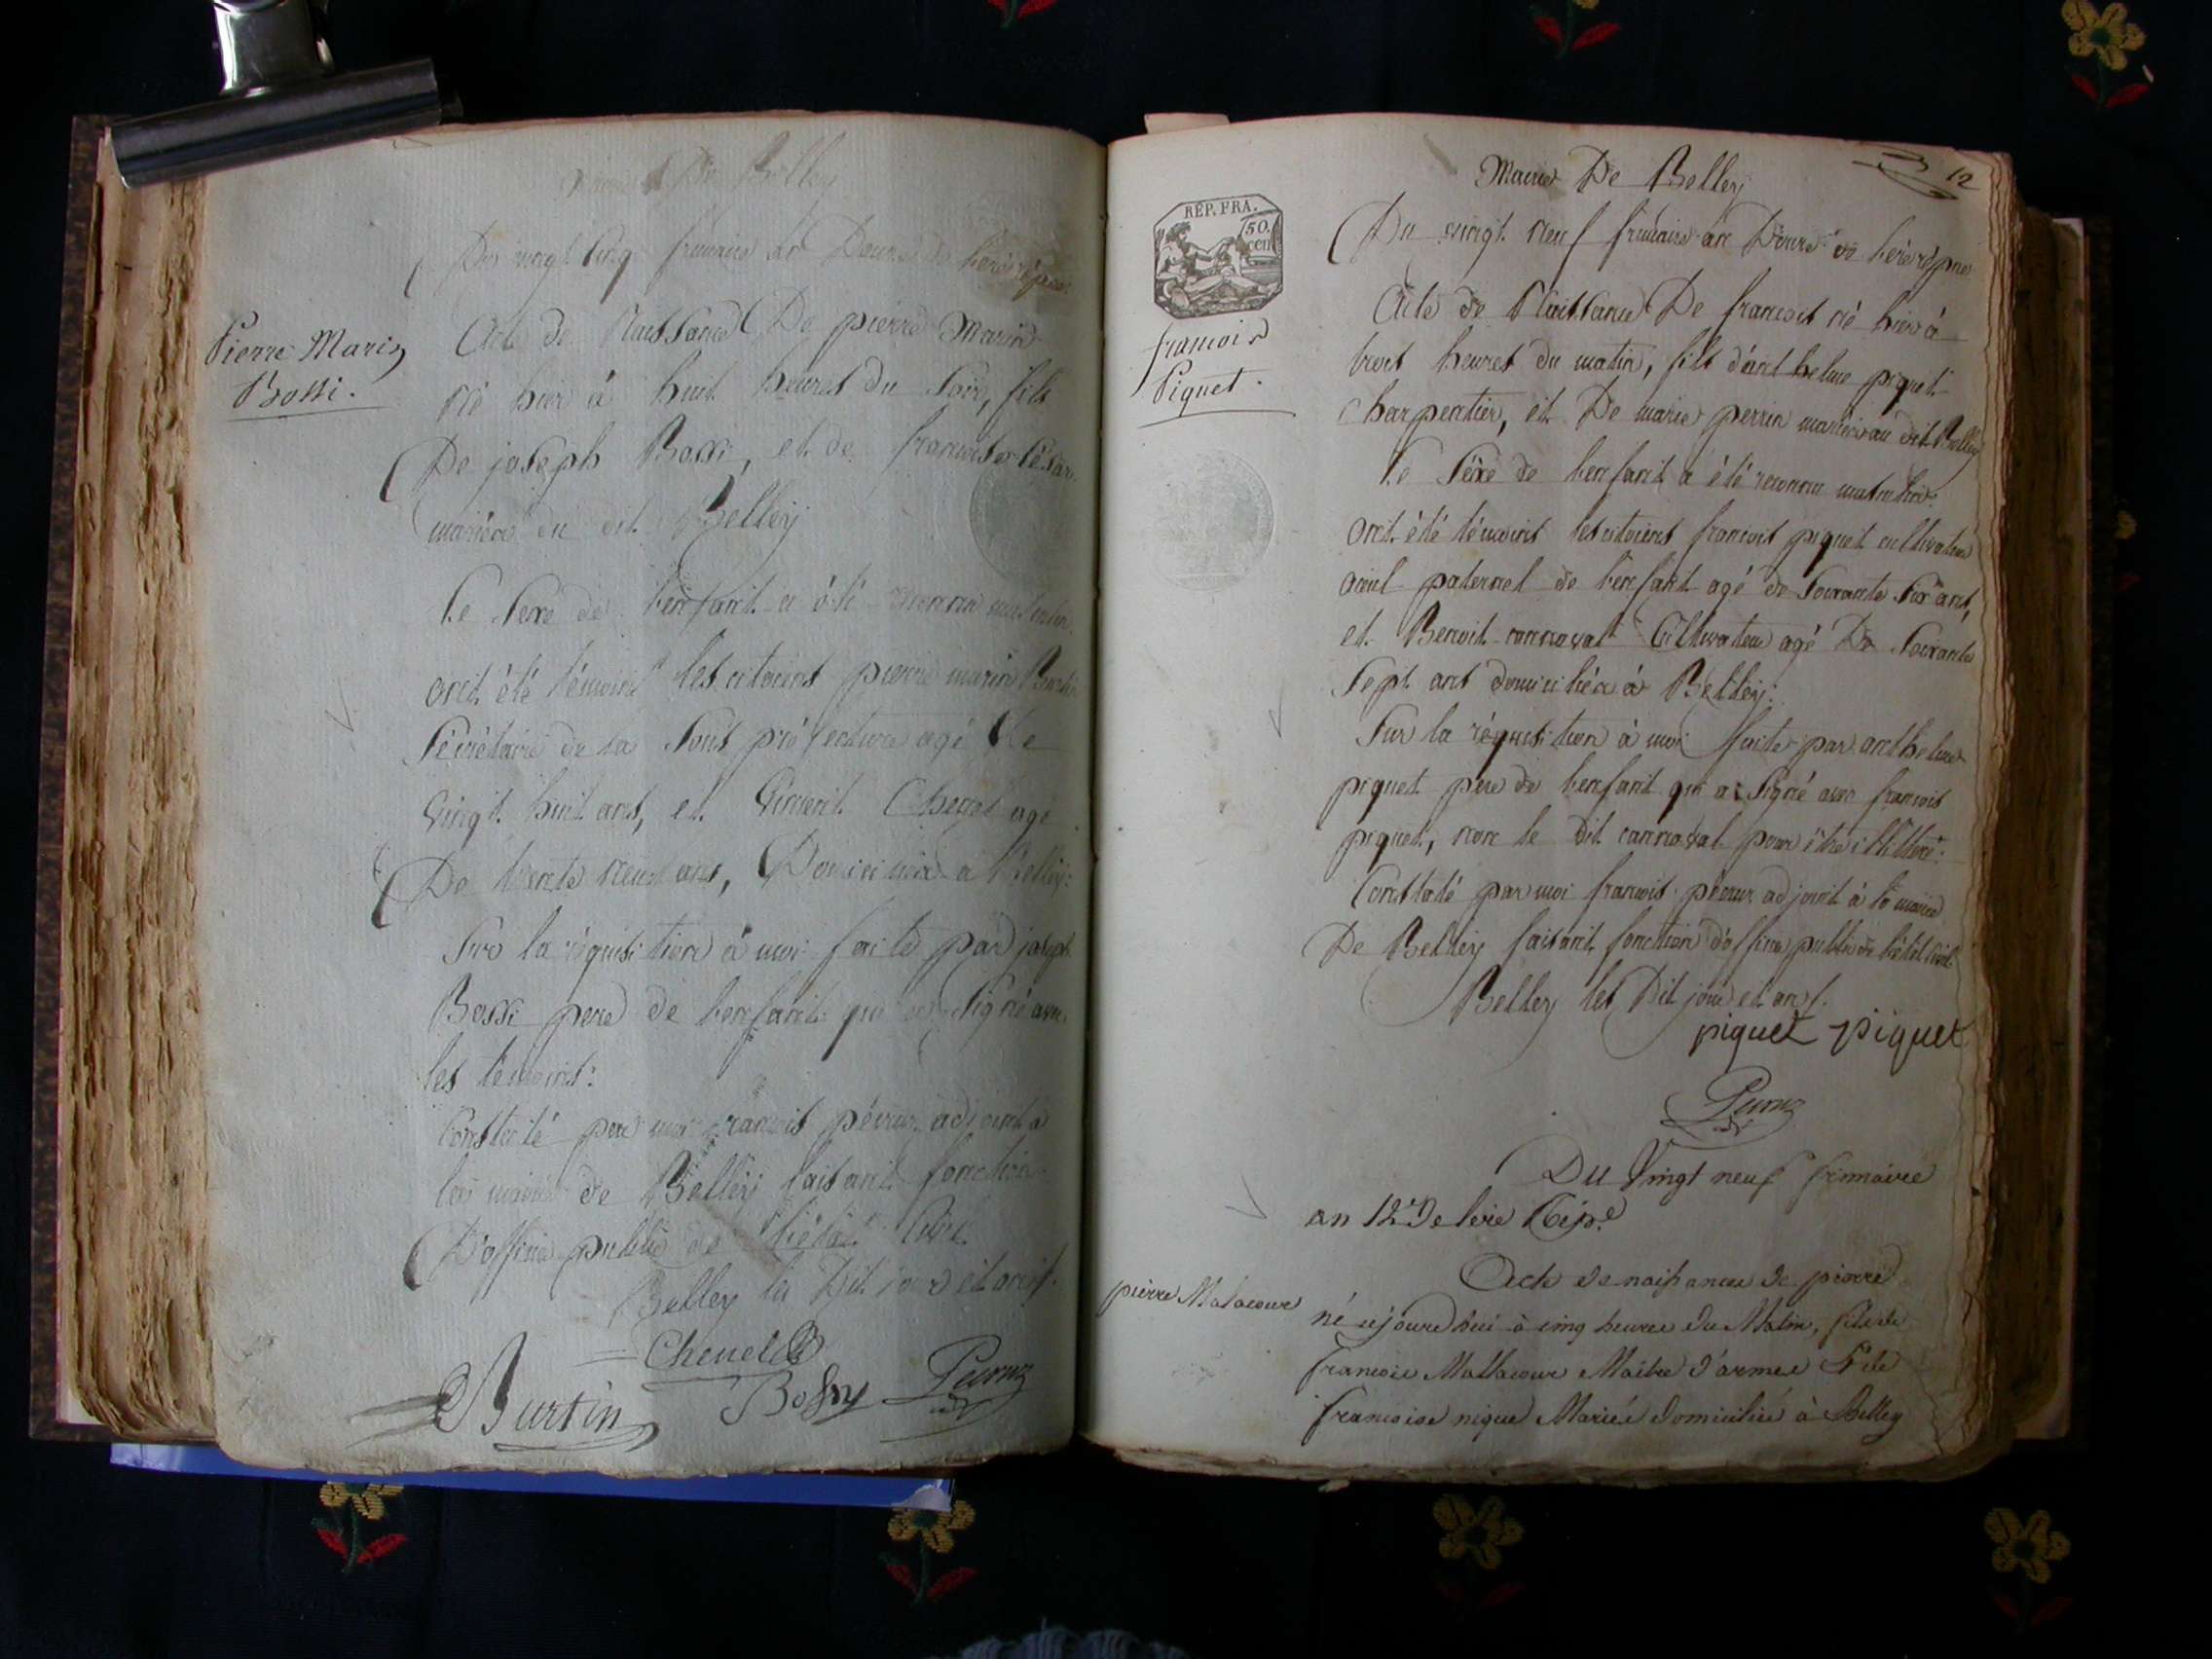 Mairie De Belley
Du vingt cinq frimaire an Douze de l'ere rep.ne
Pierre Marin
Bossi.
Acte de Naissance De pierre Marin
né hier à huit heures du Soir, fils
De joseph Bossi, et de francoise
mariés du dit Belley
Le Sexe de l'enfant a été reconnu masculin
ont été témoins les citoiens pierre marin Burtin
Sécrétaire de la Sous préfecture agé De
Vingt huit ans, et Vincent Chenel agé
De trente neuf ans, Domiciliés a Belley:
Sur la réquisition à moi faite par joseph
Bossi pere de l'enfant qui a Signé avec
les témoins:
Constaté par moi francois adjoint à
la mairie de Belley faisant fonction
D'officier public de l'état Civil
Belley les Dit jour et an.
Chenel
Burtin Bossy
12
Mairie De Belley
RÉP. FRA.
50.
cen
Du vingt neuf frimaire an Douze de l'ere rép.ne
francois
Piquet.
Acte de Naissance De francois né hier à
trois heures du matin, fils d'anthelme piquet
Charpentier, et De marie perrin mariés au dit Belley
Le Sexe de l'enfant a été reconnu masculin:
ont été témoins les citoiens francois piquet cultivateur
aieul paternel de l'enfant agé de Soixante Six ans,
et Benoit cannaval Cultivateur agé De Soixante
Sept ans domiciliés à Belley:
Sur la réquisition à moi faite par anthelme
piquet pere de l'enfant qui a Signé avec francois
piquet, non le dit cannaval pour être illitteré:
Constaté par moi francois adjoint à la mairie
De Belley faisant fonction d'officier public de l'état civil
Belley les Dit jour et an.
piquet piquet
Du Vingt neuf frimaire
an 12 De lere Rep.e
pierre Malacour
Acte de naissance de pierre
né cejourdhui à cinq heures du Matin, fils de
francois Mallacour Maitre d'armes & de
francoise nique Mariés domiciliés à Belley